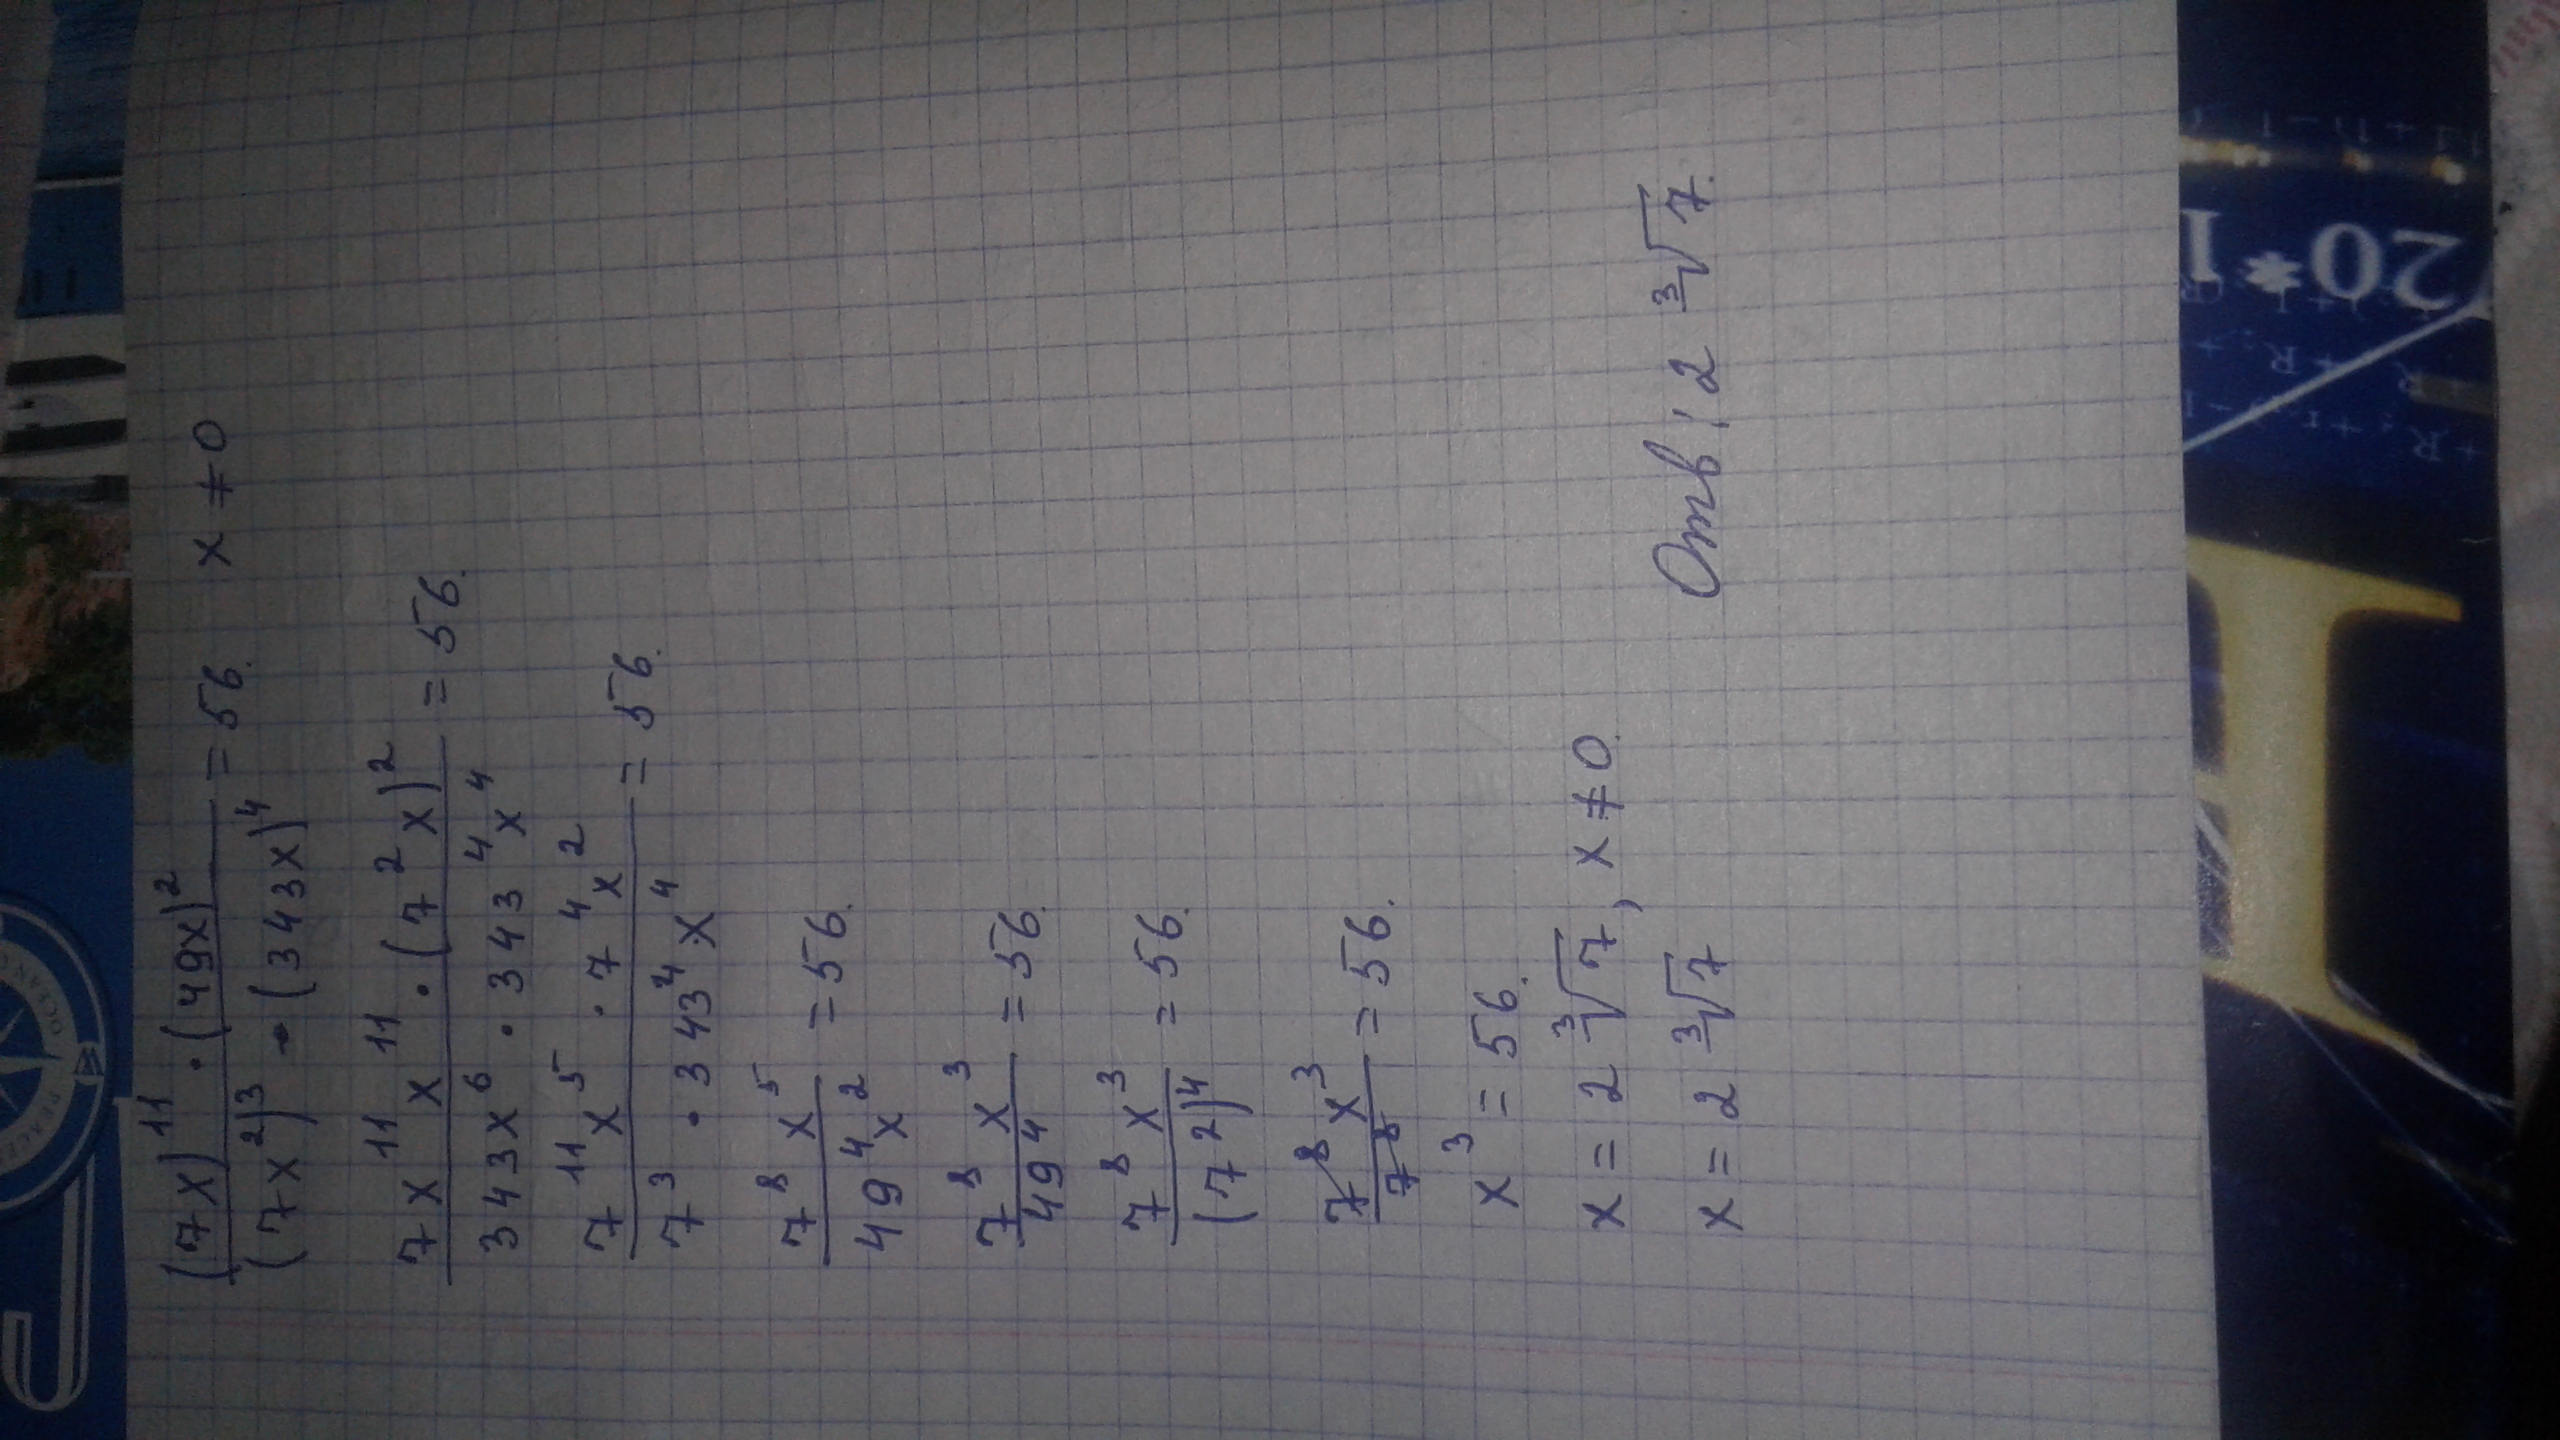 (7x)^11 · (49x)^2 / (7x^2)^3 · (343x)^4 = 56. x ≠ 0
7x^11 x^11 · (7^2 x)^2 / 343x^6 · 343^4 x^4 = 56.
7^11 x^5 · 7^4 x^2 / 7^3 · 343^4 x^4 = 56.
7^8 x^5 / 49^4 x^2 = 56.
7^8 x^3 / 49^4 = 56.
7^8 x^3 / (7^2)^4 = 56.
7^8 x^3 / 7^8 = 56.
x^3 = 56.
x = 2 ∛7, x ≠ 0.
x = 2 ∛7
Отв: 2 ∛7.
20*1
OCEAN